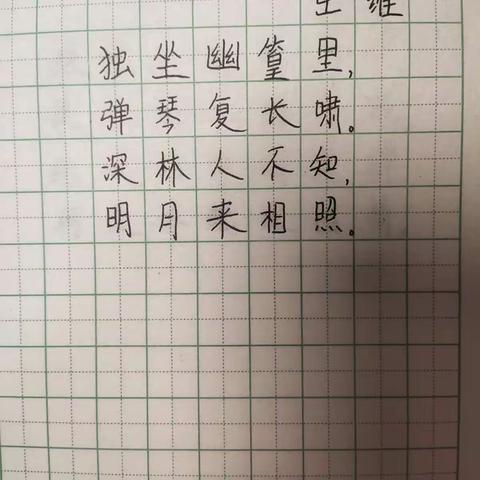 王维
独坐幽篁里,
弹琴复长啸。
深林人不知,
明月来相照。